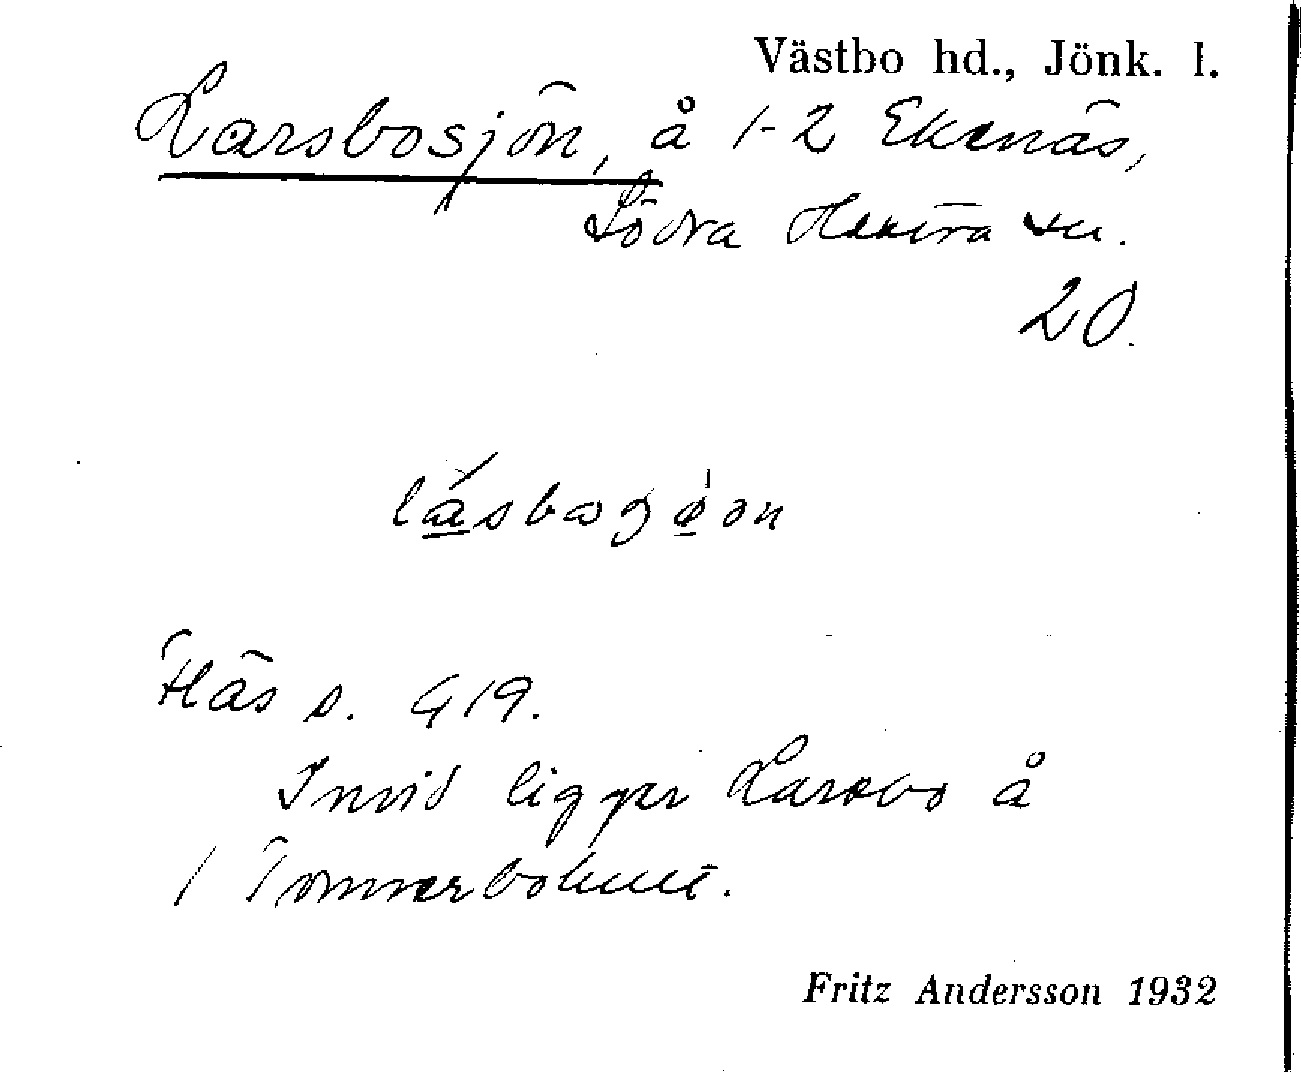 Västbo hd., Jönk. l.
Larsbosjön, å 1-2 Ekenäs,
Södra Hestra sn.
20.
låsbogøon
Häs s. 419.
Invid ligger Larsbo å
1 Tommerbohult.
Fritz Andersson 1932